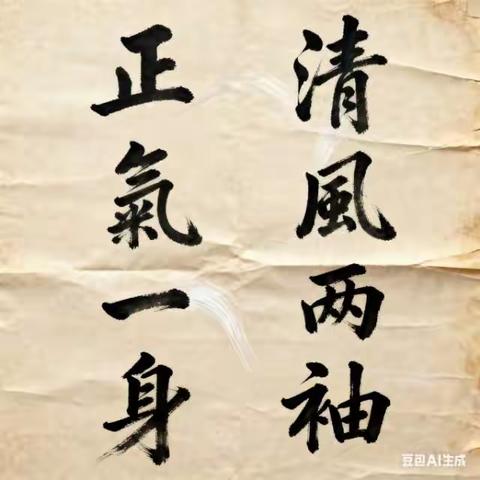 清風两袖
正氣一身
豆包AI生成